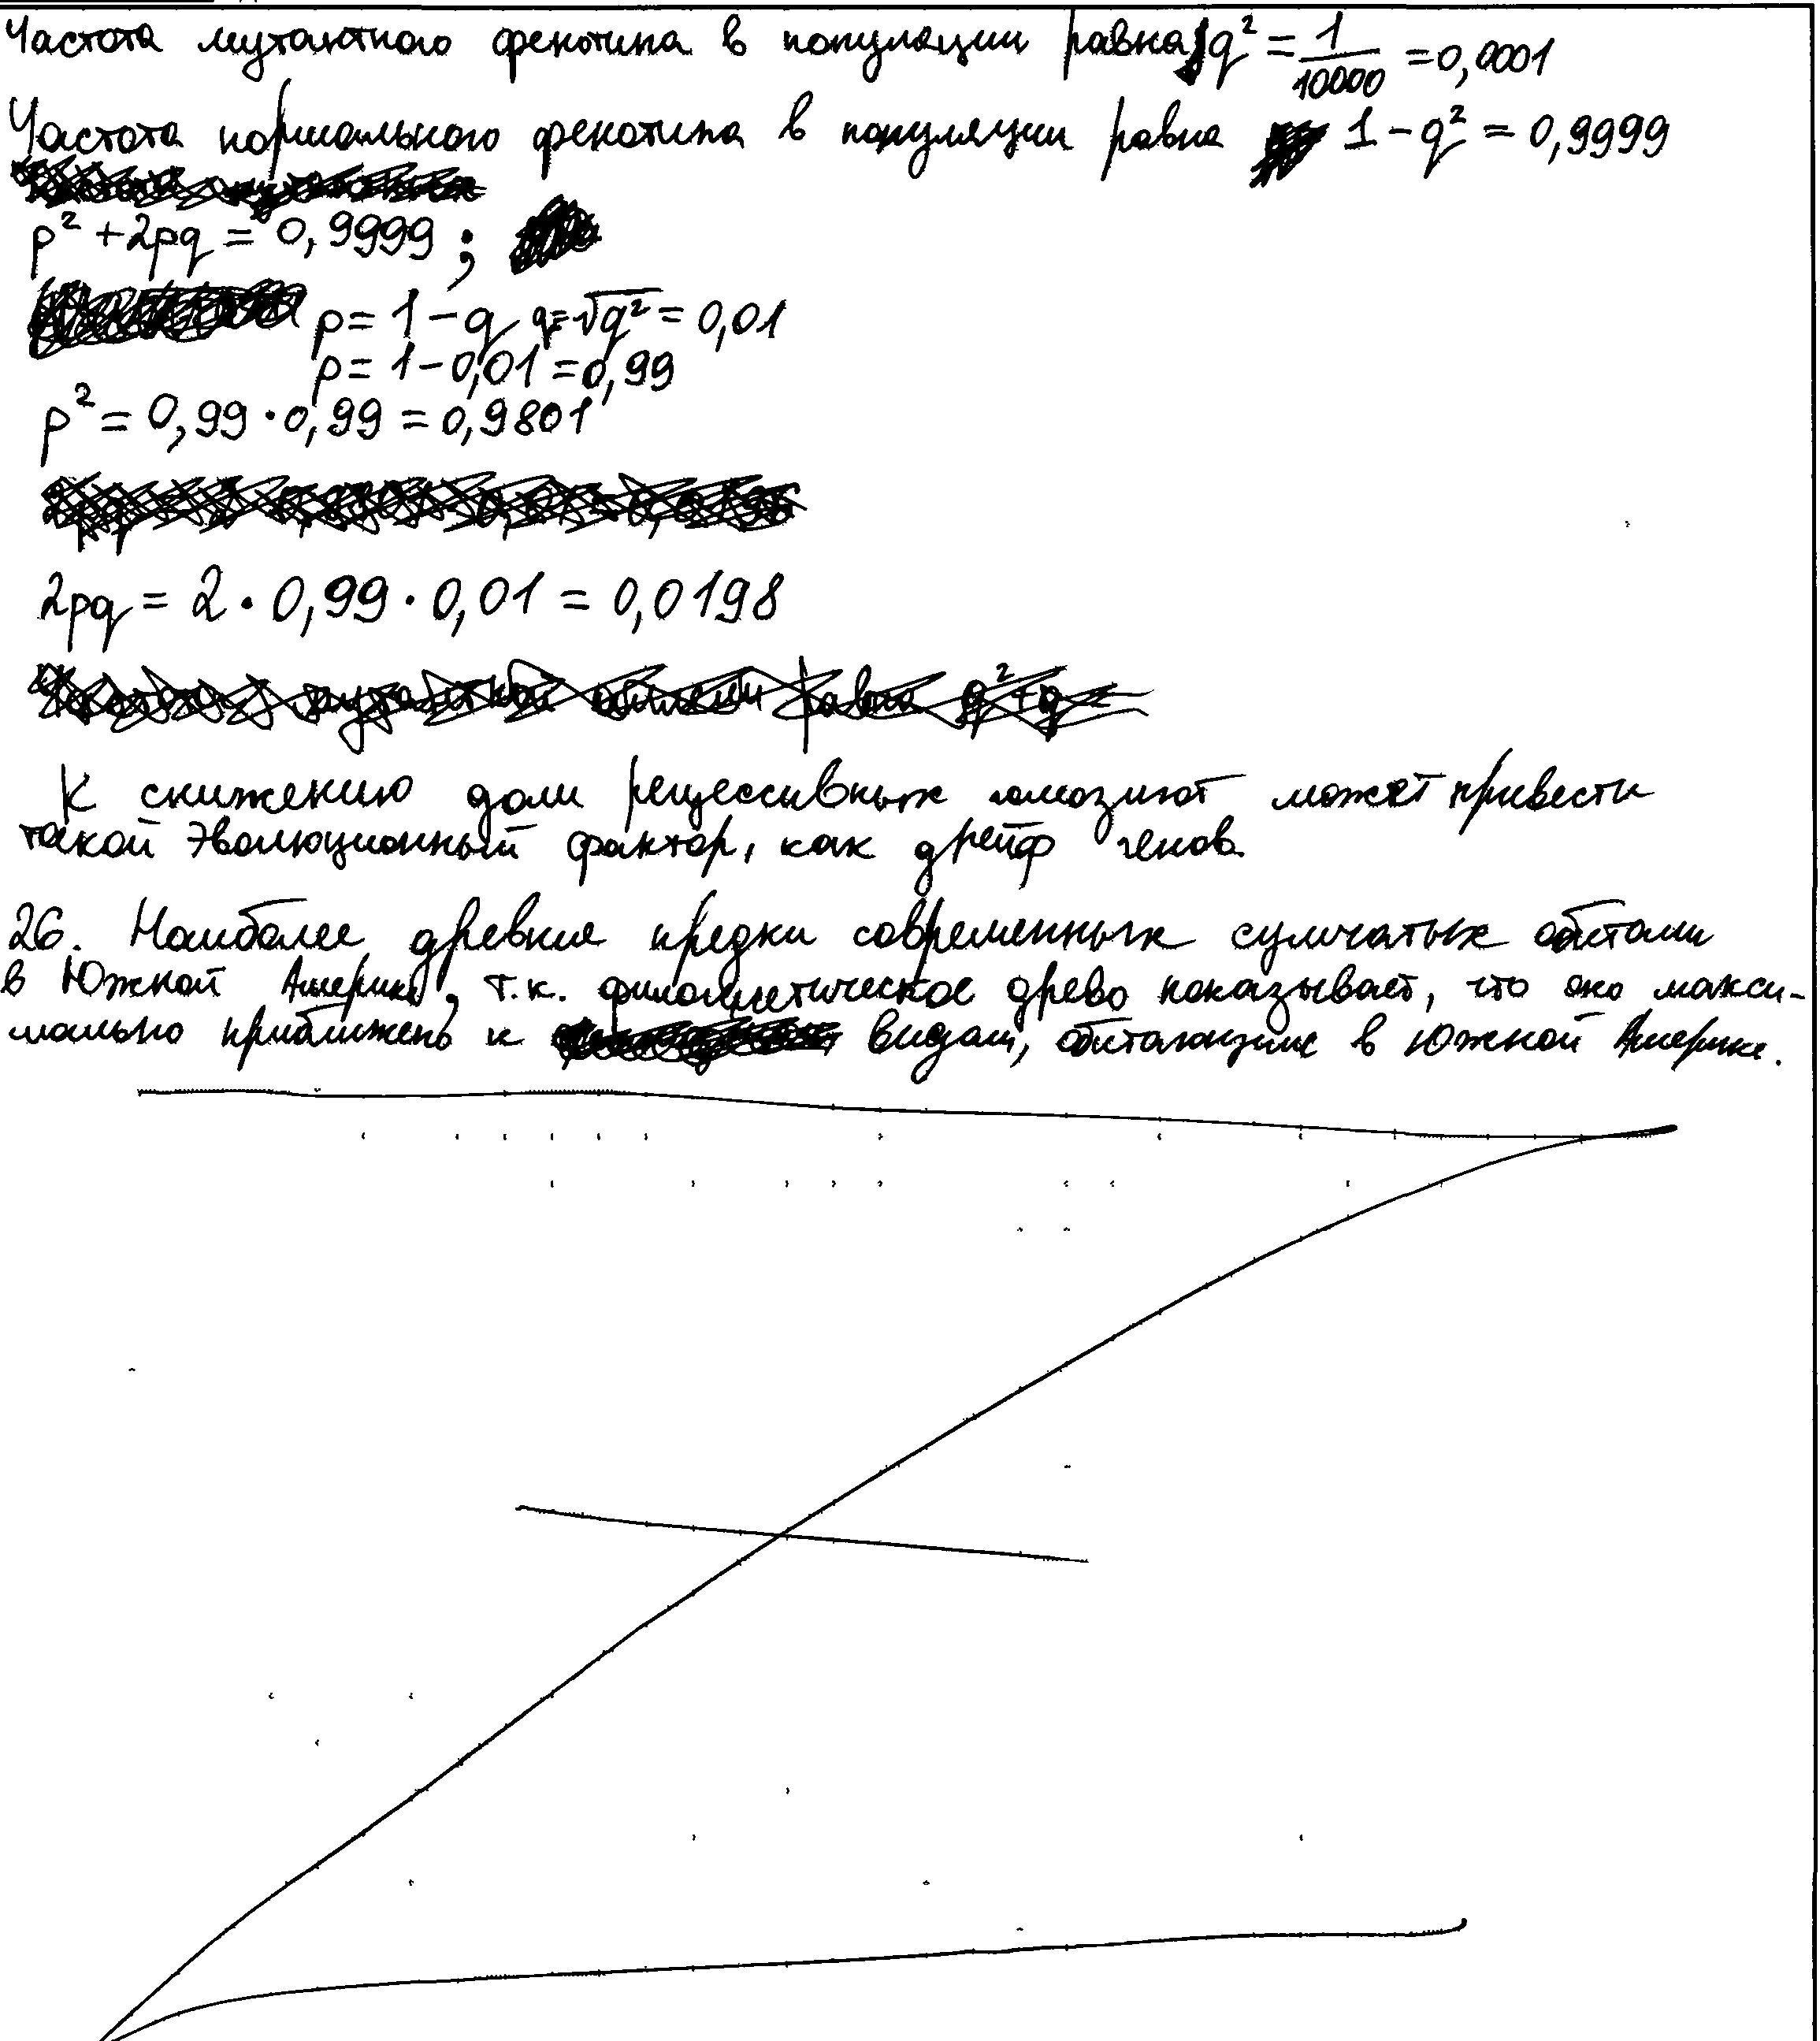 Частота мутантного фенотипа в популяции равна q² = 1/10000 = 0,0001
Частота нормального фенотипа в популяции равна 1 - q² = 0,9999
p² + 2pq = 0,9999 ;
p = 1 - q q = √q² = 0,01
p = 1 - 0,01 = 0,99
p² = 0,99 · 0,99 = 0,9801
2pq = 2 · 0,99 · 0,01 = 0,0198
К снижению доли рецессивных гомозигот может привести
такой эволюционный фактор, как дрейф генов.
26. Наиболее древние предки современных сумчатых обитали
в Южной Америке, т.к. филогенетическое древо показывает, что они макси-
мально приближены к видам, обитающие в Южной Америке.